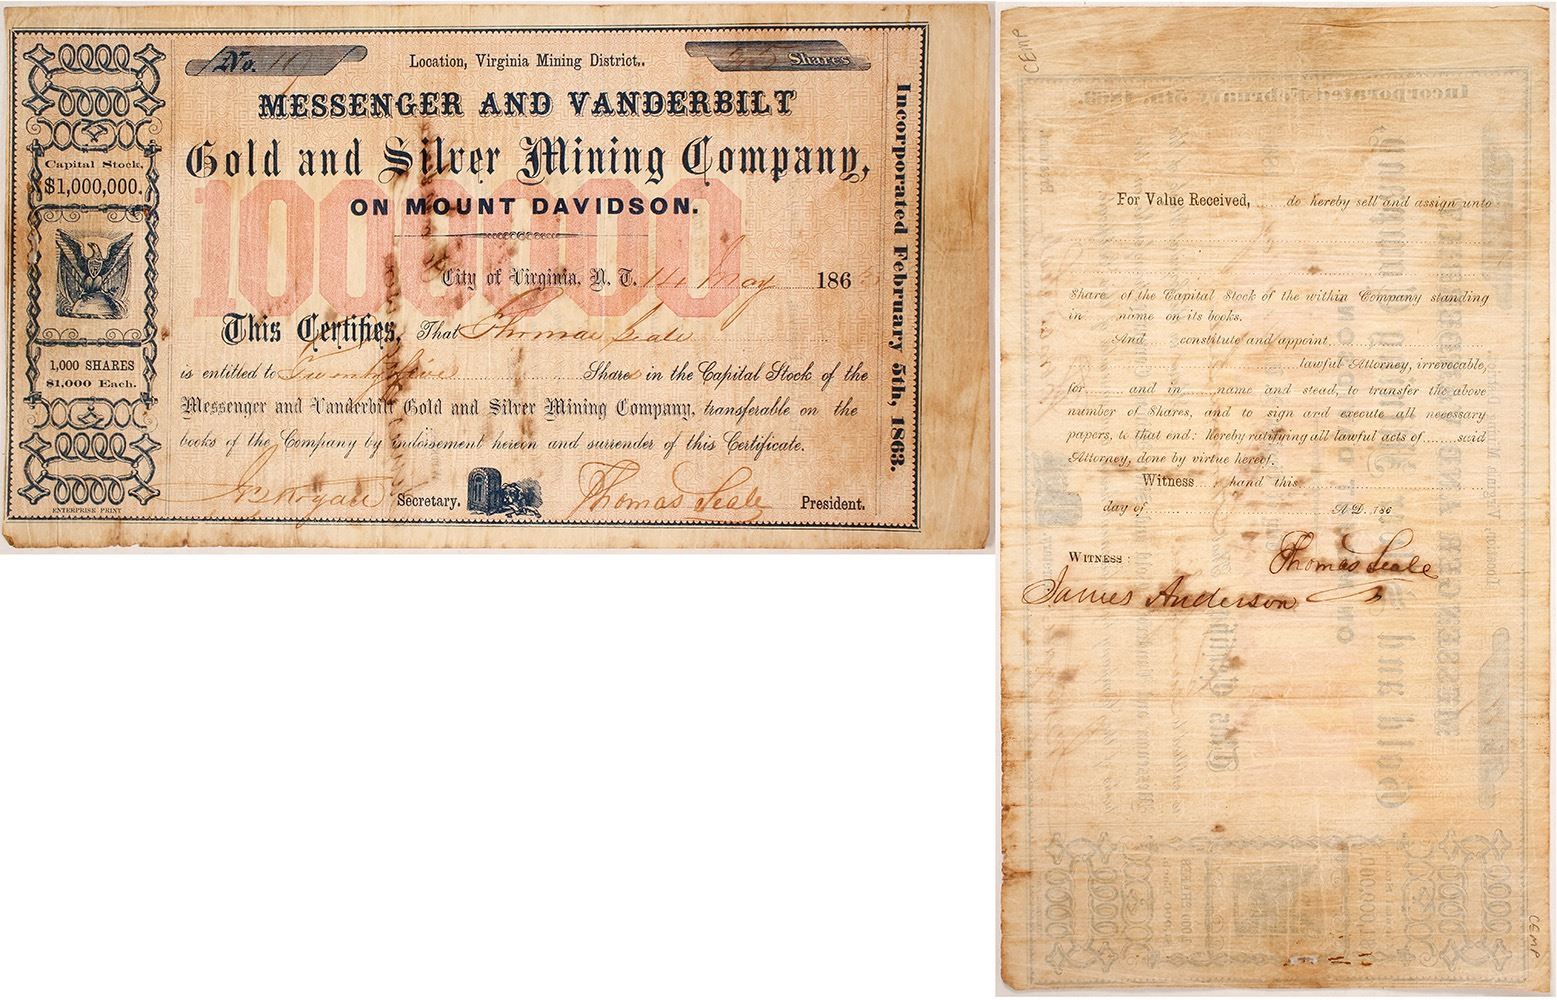 No. 19
Location, Virginia Mining District,.
25 Shares
MESSENGER AND VANDERBILT
Gold and Silver Mining Company,
1000000
ON MOUNT DAVIDSON.
City of Virginia, N. T. 14 May 1863
This Certifies, That Thomas Seale
is entitled to Twenty five Shares in the Capital Stock of the
Messenger and Vanderbilt Gold and Silver Mining Company, transferable on the
books of the Company by endorsement hereon and surrender of this Certificate.
Secretary.
Thomas Seale President.
Capital Stock,
$1,000,000.
1,000 SHARES
$1,000 Each.
ENTERPRISE PRINT
Incorporated February 5th, 1863.
CEMP
For Value Received, do hereby sell and assign unto
Share of the Capital Stock of the within Company standing
in name on its books.
And constitute and appoint
lawful Attorney, irrevocable,
for and in name and stead, to transfer the above
number of Shares, and to sign and execute all necessary
papers, to that end: hereby ratifying all lawful acts of said
Attorney, done by virtue hereof.
Witness hand this
day of A.D. 186
WITNESS:
Thomas Seale
James Anderson
CEMP